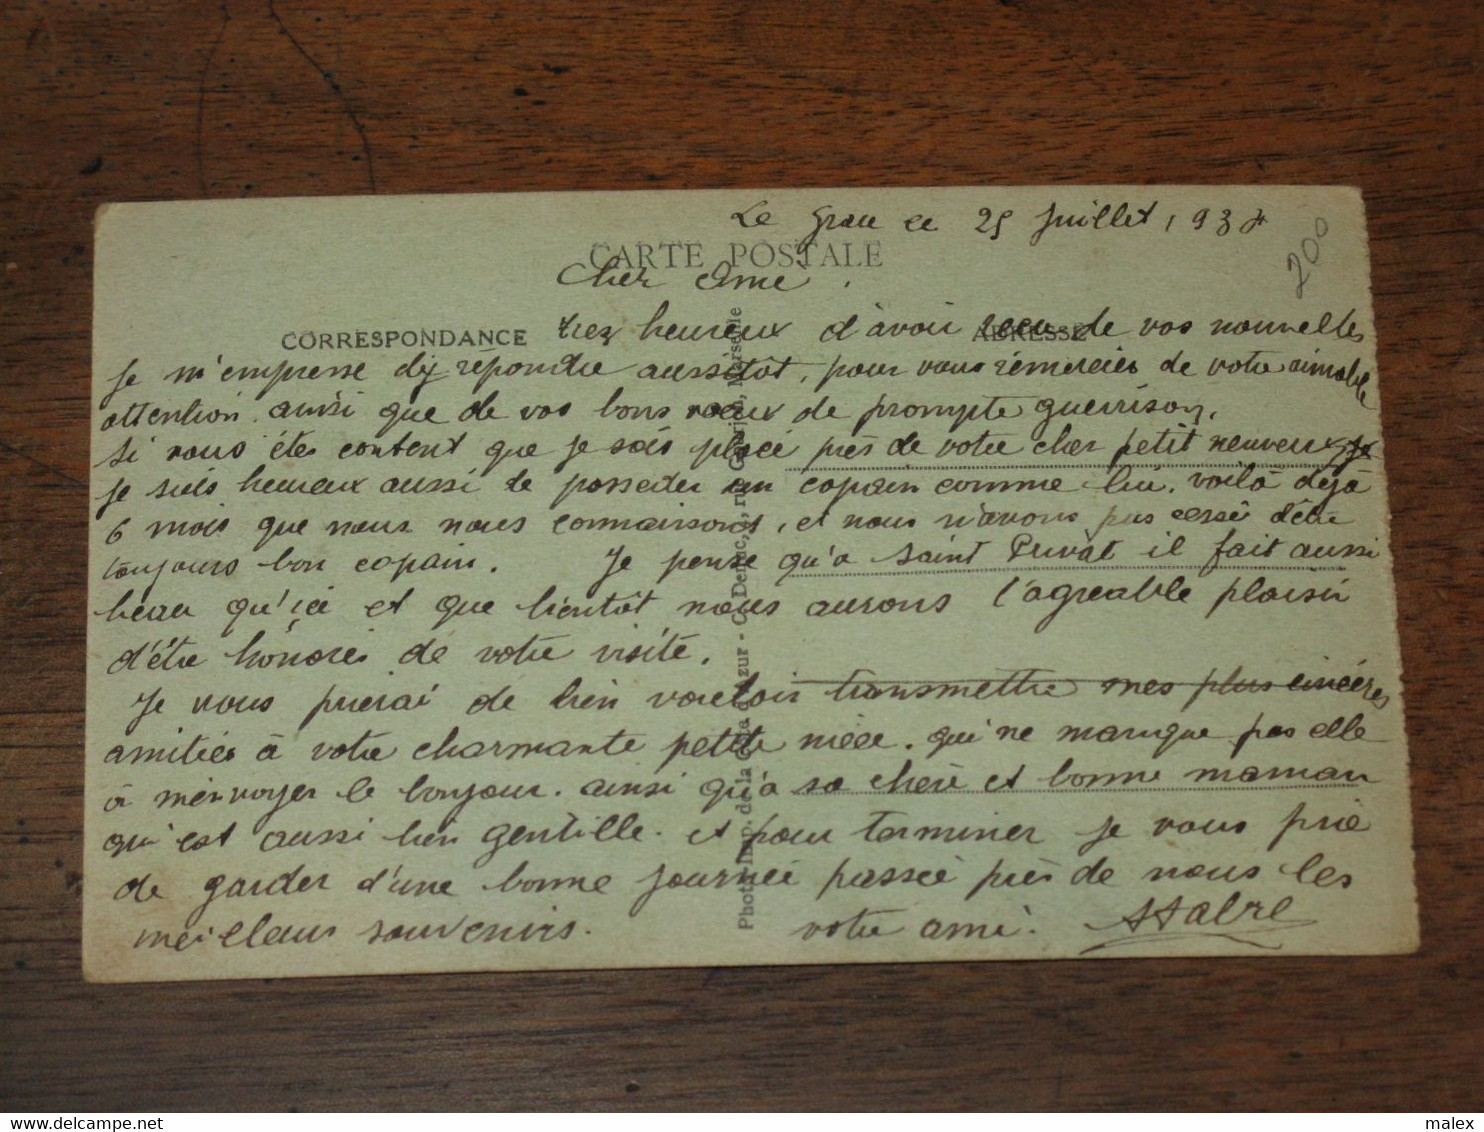 Le Grau ce 25 Juillet, 193
200
CARTE POSTALE
Cher Ami.
CORRESPONDANCE
ADRESSE
trez heureux d'avoir recu de vos nouvelles
Je m'empresse d'y répondre aussitôt, pour vous rémercies de votre aimable
attention. ainsi que de vos bons voeux de prompte guerrison,
Si vous étes content que je sois placé près de votre cher petit neuveux, je
je suis heureux aussi de posseder un copain comme lui. voilà déjà
6 mois que nous nous connaissons, et nous n'avons pas cessé d'être
toujours bon copain. Je pense qu'a Saint Privat il fait aussi
beau qu'ici et que bientôt nous aurons l'agreable plaisir
d'étre honorés de votre visite.
Je vous prierai de bien vouloir transmettre mes plus cincéres
amitiés à votre charmante petite nièce. qui ne manque pas elle
à m'envoyer le bonjour. ainsi qu'a sa chere et bonne maman
qui est aussi bien gentille. et pour terminer je vous prie
de garder d'une bonne journée passée près de nous les
meilleurs souvenirs. votre ami.
Photo-Imp. de la Côte d'Azur - C. Deluc, rue, Marseille
delcampe.net
malex